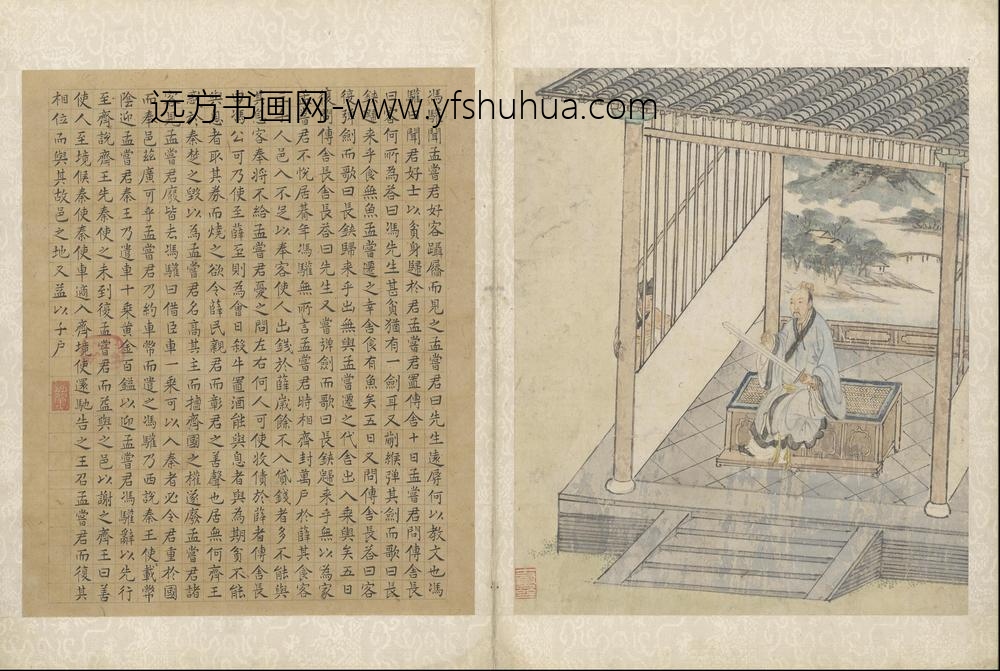 馮驩聞孟嘗君好客躡屩而見之孟嘗君曰先生遠辱何以教文也馮
驩曰聞君好士以貧身歸於君孟嘗君置傳舍十日孟嘗君問傳舍長
曰客何所為荅曰馮先生甚貧猶有一劍耳又蒯緱弹其劍而歌曰長
鋏歸来乎食無魚孟嘗遷之幸舍食有魚矣五日又問傳舍長荅曰客
復弹劍而歌曰長鋏歸来乎出無輿孟嘗遷之代舍出入乘輿矣五日
傳舍長舍長荅曰先生又嘗弹劍而歌曰長鋏歸来乎無以為家
君不悅居朞年馮驩無所言孟嘗君時相齊封萬戶於薛其食客
人邑入不足以奉客使人出錢於薛歲餘不入貸錢者多不能與
息客奉將不給孟嘗君憂之問左右何人可使收債於薛者傳舍長
馮公可乃使至薛至則為會日殺牛置酒能與息者與為期貧不能
與息者取其券而燒之欲令薛民親君而彰君之善聲也居無何齊王
秦楚之毀以為孟嘗君名高其主而擅齊國之權遂廢孟嘗君諸
孟嘗君廢皆去馮驩曰借臣車一乘可以入秦者必令君重於國
而奉邑益廣可乎孟嘗君乃約車幣而遣之馮驩乃西說秦王使載幣
陰迎孟嘗君秦王乃遣車十乘黄金百鎰以迎孟嘗君馮驩辭以先行
至齊說齊王先秦使之未到復孟嘗君而益與之邑以謝之齊王曰善
使人至境候秦使秦使車適入齊境使還馳告之王召孟嘗君而復其
相位而與其故邑之地又益以千戶
远方书画网-www.yfshuhua.com